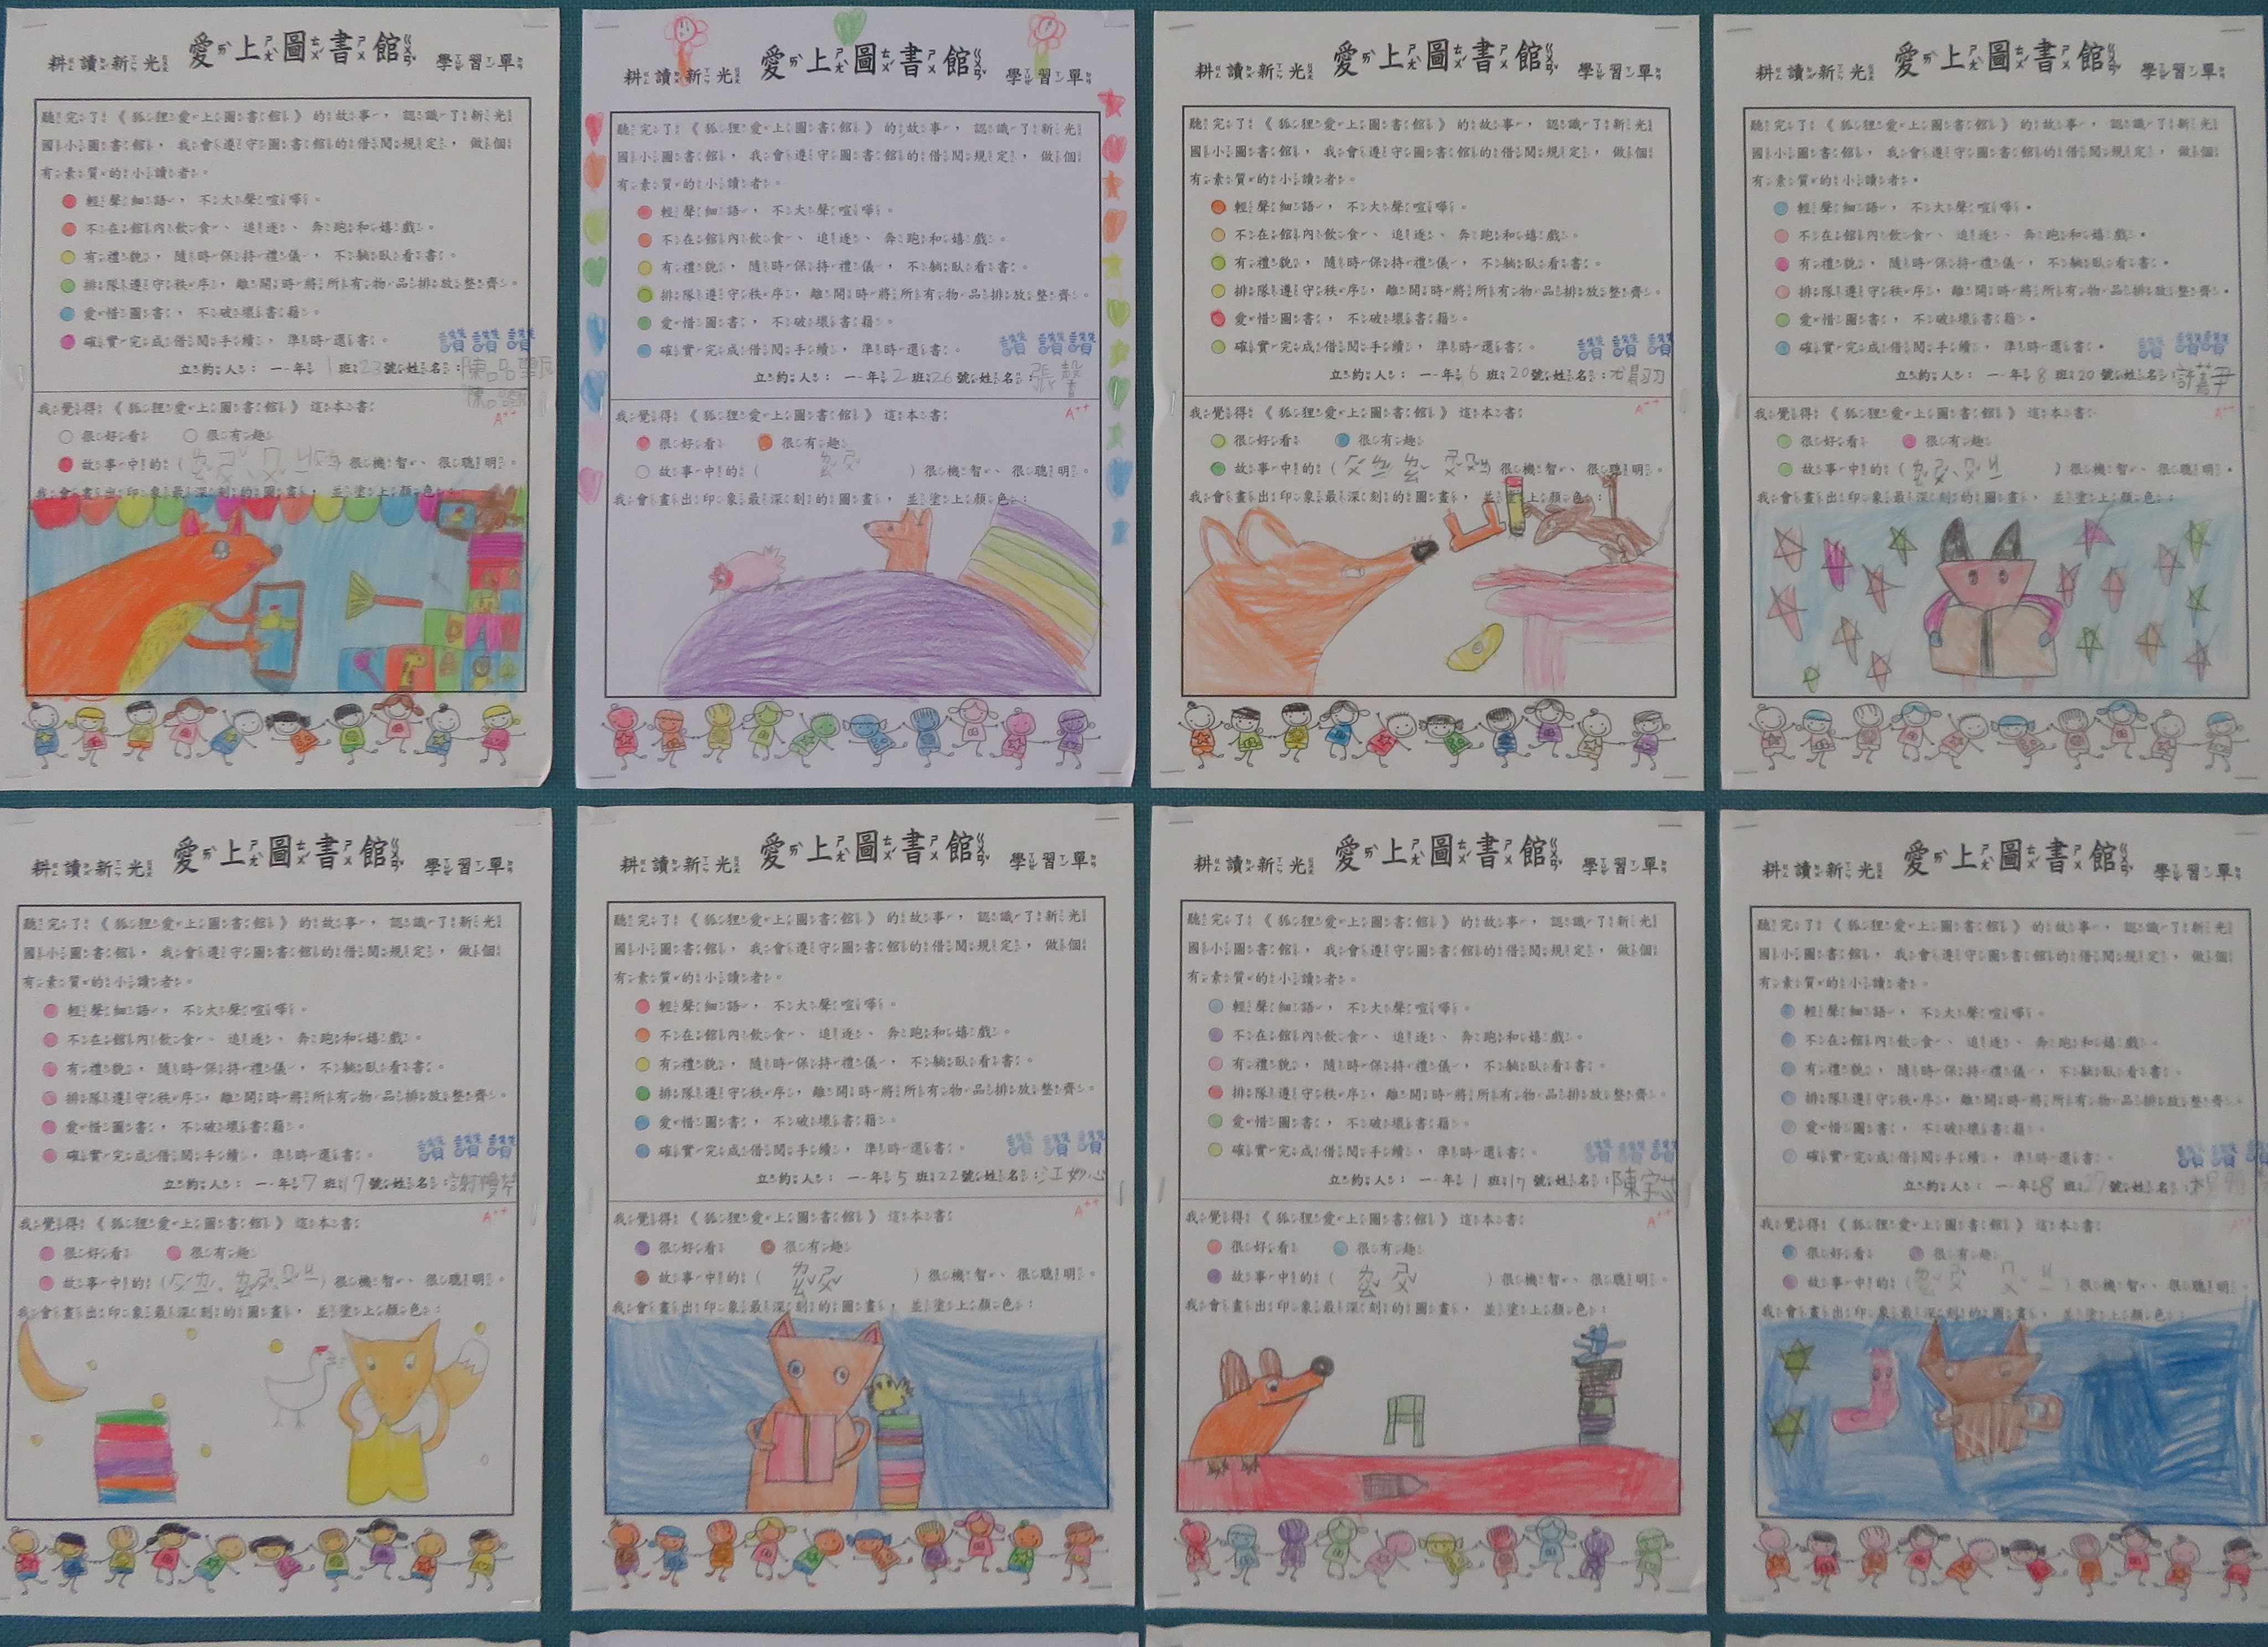 耕讀新光 愛上圖書館 學習單
聽完了《狐狸愛上圖書館》的故事，認識了新光
國小圖書館，我會遵守圖書館的借閱規定，做個
有素質的小讀者。
輕聲細語，不大聲喧嘩。
不在館內飲食、追逐、奔跑和嬉戲。
有禮貌，隨時保持禮儀，不躺臥看書。
排隊遵守秩序，離開時將所有物品排放整齊。
愛惜圖書，不破壞書籍。
確實完成借閱手續，準時還書。
讚 讚 讚
立約人：一年1班23號姓名：陳品
我覺得《狐狸愛上圖書館》這本書：
A++
很好看 很有趣
故事中的（ㄌㄠˇㄕㄨˇ ）很機智、很聰明。
我會畫出印象最深刻的圖畫，並塗上顏色：
耕讀新光 愛上圖書館 學習單
聽完了《狐狸愛上圖書館》的故事，認識了新光
國小圖書館，我會遵守圖書館的借閱規定，做個
有素質的小讀者。
輕聲細語，不大聲喧嘩。
不在館內飲食、追逐、奔跑和嬉戲。
有禮貌，隨時保持禮儀，不躺臥看書。
排隊遵守秩序，離開時將所有物品排放整齊。
愛惜圖書，不破壞書籍。
確實完成借閱手續，準時還書。
讚 讚 讚
立約人：一年2班26號姓名：張
我覺得《狐狸愛上圖書館》這本書：
A++
很好看 很有趣
故事中的（ㄌㄠˇㄕㄨˇ）很機智、很聰明。
我會畫出印象最深刻的圖畫，並塗上顏色：
耕讀新光 愛上圖書館 學習單
聽完了《狐狸愛上圖書館》的故事，認識了新光
國小圖書館，我會遵守圖書館的借閱規定，做個
有素質的小讀者。
輕聲細語，不大聲喧嘩。
不在館內飲食、追逐、奔跑和嬉戲。
有禮貌，隨時保持禮儀，不躺臥看書。
排隊遵守秩序，離開時將所有物品排放整齊。
愛惜圖書，不破壞書籍。
確實完成借閱手續，準時還書。
讚 讚 讚
立約人：一年6班20號姓名：
我覺得《狐狸愛上圖書館》這本書：
A++
很好看 很有趣
故事中的（ ）很機智、很聰明。
我會畫出印象最深刻的圖畫，並塗上顏色：
耕讀新光 愛上圖書館 學習單
聽完了《狐狸愛上圖書館》的故事，認識了新光
國小圖書館，我會遵守圖書館的借閱規定，做個
有素質的小讀者。
輕聲細語，不大聲喧嘩。
不在館內飲食、追逐、奔跑和嬉戲。
有禮貌，隨時保持禮儀，不躺臥看書。
排隊遵守秩序，離開時將所有物品排放整齊。
愛惜圖書，不破壞書籍。
確實完成借閱手續，準時還書。
讚 讚讚
立約人：一年8班20號姓名：許嘉尹
我覺得《狐狸愛上圖書館》這本書：
A++
很好看 很有趣
故事中的（ ）很機智、很聰明。
我會畫出印象最深刻的圖畫，並塗上顏色：
耕讀新光 愛上圖書館 學習單
聽完了《狐狸愛上圖書館》的故事，認識了新光
國小圖書館，我會遵守圖書館的借閱規定，做個
有素質的小讀者。
輕聲細語，不大聲喧嘩。
不在館內飲食、追逐、奔跑和嬉戲。
有禮貌，隨時保持禮儀，不躺臥看書。
排隊遵守秩序，離開時將所有物品排放整齊。
愛惜圖書，不破壞書籍。
確實完成借閱手續，準時還書。
讚 讚 讚
立約人：一年7班17號姓名：謝
我覺得《狐狸愛上圖書館》這本書：
A++
很好看 很有趣
故事中的（ ）很機智、很聰明。
我會畫出印象最深刻的圖畫，並塗上顏色：
耕讀新光 愛上圖書館 學習單
聽完了《狐狸愛上圖書館》的故事，認識了新光
國小圖書館，我會遵守圖書館的借閱規定，做個
有素質的小讀者。
輕聲細語，不大聲喧嘩。
不在館內飲食、追逐、奔跑和嬉戲。
有禮貌，隨時保持禮儀，不躺臥看書。
排隊遵守秩序，離開時將所有物品排放整齊。
愛惜圖書，不破壞書籍。
確實完成借閱手續，準時還書。
讚 讚 讚
立約人：一年5班22號姓名：江妙心
我覺得《狐狸愛上圖書館》這本書：
A++
很好看 很有趣
故事中的（ㄌㄠˇㄕㄨˇ）很機智、很聰明。
我會畫出印象最深刻的圖畫，並塗上顏色：
耕讀新光 愛上圖書館 學習單
聽完了《狐狸愛上圖書館》的故事，認識了新光
國小圖書館，我會遵守圖書館的借閱規定，做個
有素質的小讀者。
輕聲細語，不大聲喧嘩。
不在館內飲食、追逐、奔跑和嬉戲。
有禮貌，隨時保持禮儀，不躺臥看書。
排隊遵守秩序，離開時將所有物品排放整齊。
愛惜圖書，不破壞書籍。
確實完成借閱手續，準時還書。
讚 讚 讚
立約人：一年1班17號姓名：陳宇
我覺得《狐狸愛上圖書館》這本書：
A++
很好看 很有趣
故事中的（ㄌㄠˇㄕㄨˇ）很機智、很聰明。
我會畫出印象最深刻的圖畫，並塗上顏色：
耕讀新光 愛上圖書館 學習單
聽完了《狐狸愛上圖書館》的故事，認識了新光
國小圖書館，我會遵守圖書館的借閱規定，做個
有素質的小讀者。
輕聲細語，不大聲喧嘩。
不在館內飲食、追逐、奔跑和嬉戲。
有禮貌，隨時保持禮儀，不躺臥看書。
排隊遵守秩序，離開時將所有物品排放整齊。
愛惜圖書，不破壞書籍。
確實完成借閱手續，準時還書。
讚 讚
立約人：一年8班27號姓名：
我覺得《狐狸愛上圖書館》這本書：
很好看 很有趣
故事中的（ ）很機智、很聰明。
我會畫出印象最深刻的圖畫，並塗上顏色：